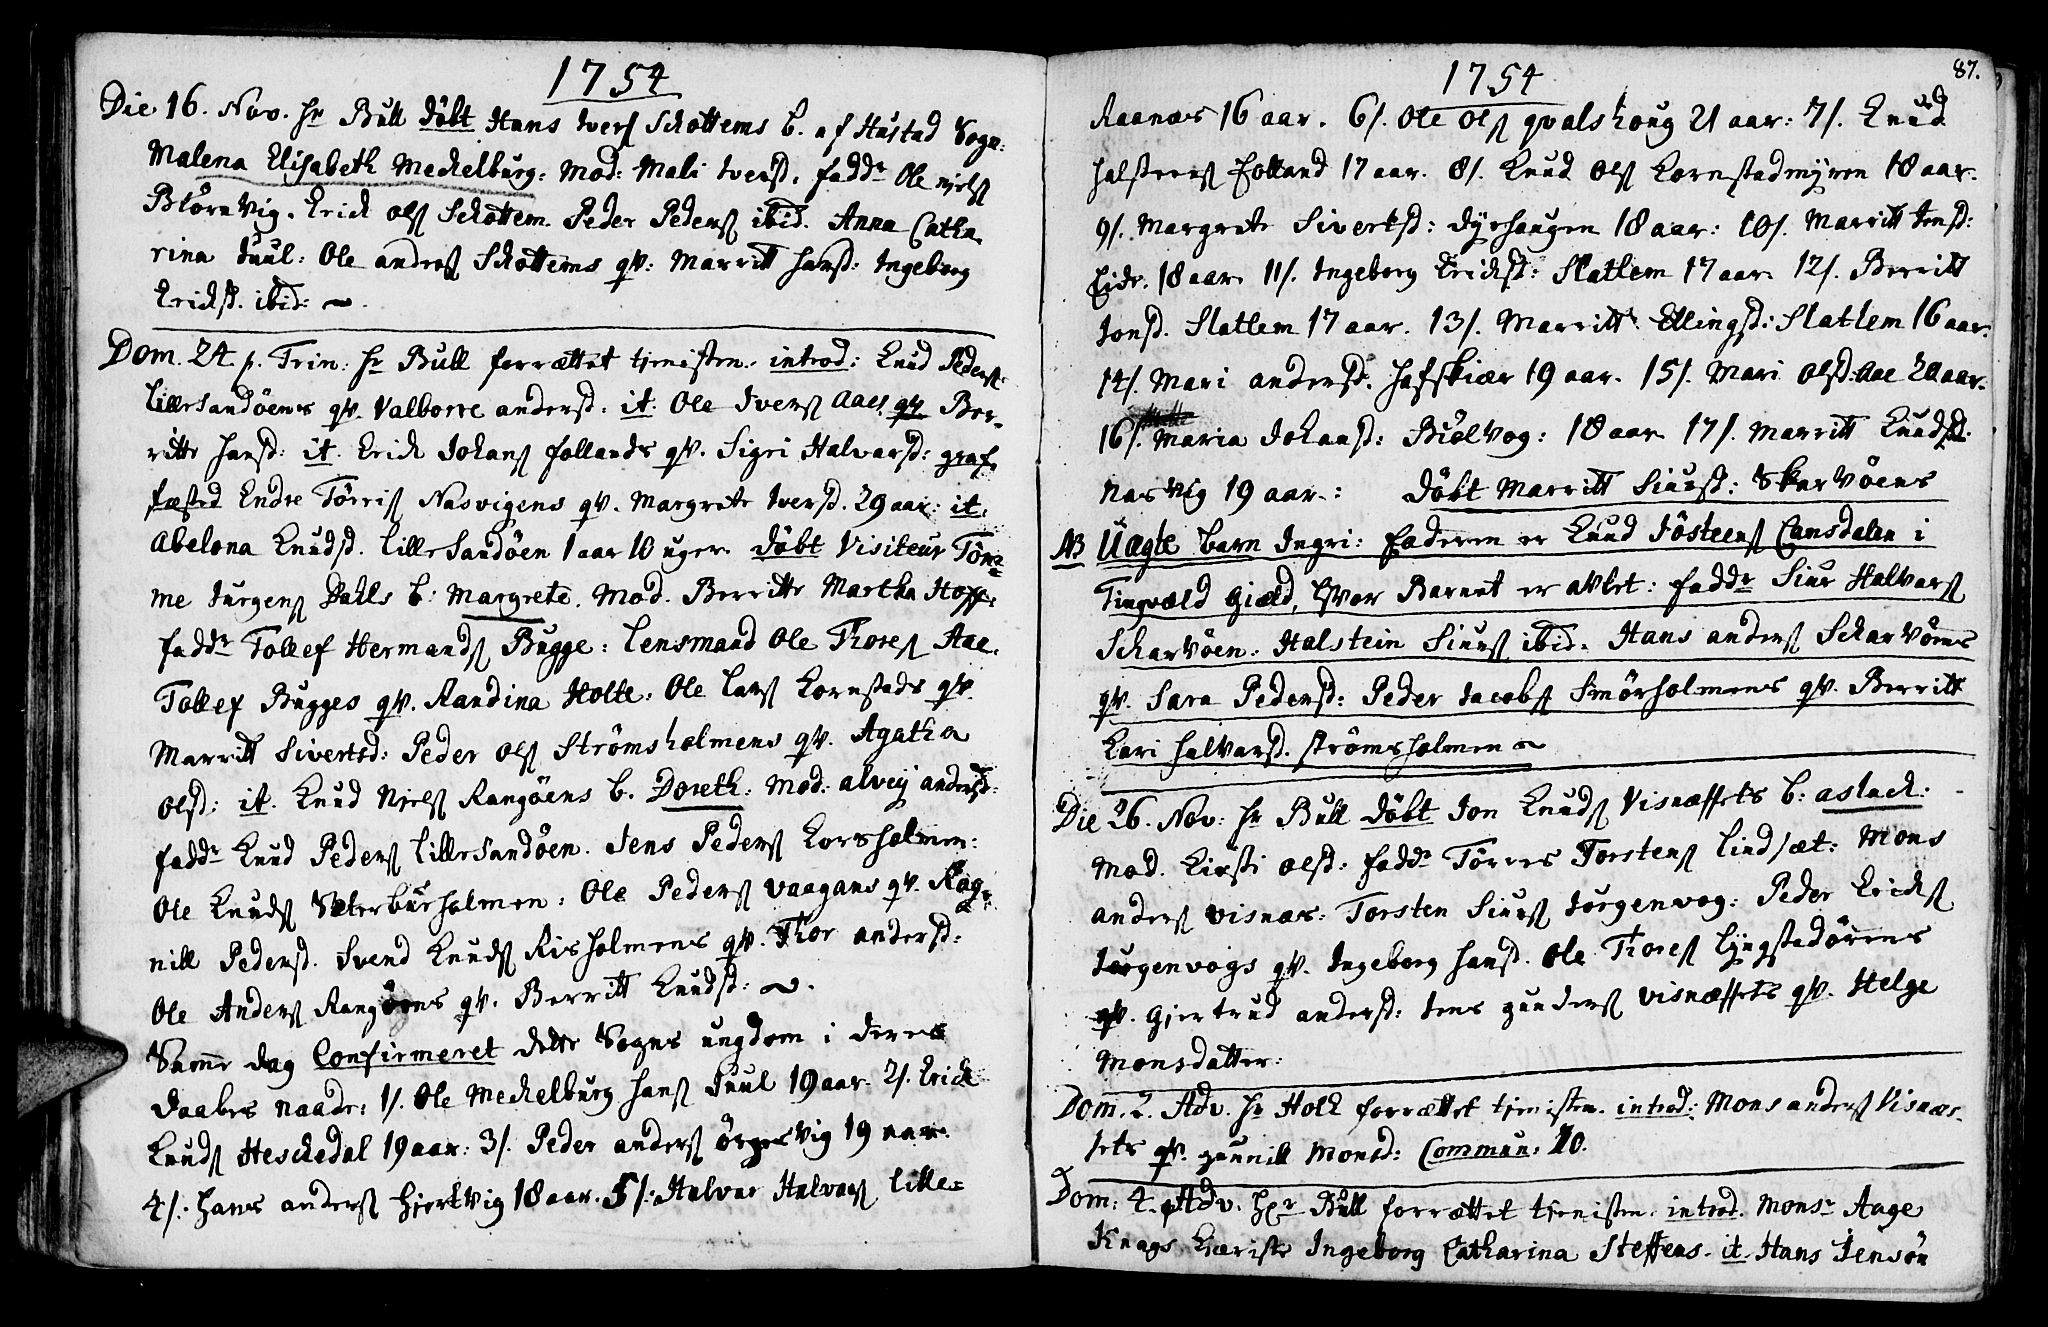 1754
Die 16. Nov. hr Bull döbt Hans Ivers Schottems b. af Hustad Sogn:
Malena Elisabeth Meckelburg: Mod: Mali Iversd. fadd:r Ole Njels
Biörnvig. Erich Ols Schottem. Peder Peders ibid. Anna Catha,
rina Juul: Ole anders Schottems qv: Marritt Hansd: Ingeborg
Erichsd. ibid:
Dom. 24 p. Trin: hr Bull forrættet tjenisten. introd: Knud Peders
Lille Sandöens qv. Valborre andersd. it. Ole Ivers Aaes qv Ber,
ritte Hansd: it. Erich Johans follands qv. Sigri Halvarsd: graf,
fæsted Endre Törris Nasvigens qv. Margrete Iversd. 29 aar: it.
Abelona Knudsd. Lille Sandöen 1 aar 10 uger. döbt Visiteur Tön=
me Jurgens Dahls b: Margrete. Mod. Berritte Martha Hoff:
fadd:r Tollef Hermands Bugge: Lensmand Ole Thores Aae.
Tollef Bugges qv. Randina Holte. Ole Lars Kornstads qv.
Marritt Sivertsd: Peder Ols Strömsholmens qv. Agatha
Olsd: it. Knud Njels Rangöens b. Doreth: Mod: alvej andersd:
fadd:r Knud Peders Lille Sandöen. Jens Peders Korsholmen:
Ole Knuds Seterburholmen: Ole Peders Vaagans qv. Rag=
nill Pedersd. Svend Knuds Risholmens qv. Thor andersd:
Ole Anders Rangöens qv. Berritt Knudsd:
Samme dag Confirmeret dette Sogns ungdom i deres
daabes naade: 1/. Ole Meckelburg Hans Juul 19 aar. 2/. Erich
Knuds Heschedal 19 aar: 3/. Peder anders örgesvig 19 aar.
4/: Hans anders Hjertvig 18 aar. 5/: Halvar Halvars Lille=
1754
87.
Raanæs 16 aar. 6/. Ole Ols qvalshoug 21 aar: 7/. Knud
Halsteens Folland 17 aar. 8/. Knud Ols Kornstadmyren 18 aar.
9/. Margrete Sivertsd: Dyrhaugen 18 aar: 10/. Marritt Jensd:
Eide. 18 aar. 11/. Ingeborg Erichsd: Slatlem 17 aar. 12/. Berritt
Jonsd. Slatlem 17 aar. 13/. Marritt Ellingsd: Slatlem 16 aar.
14/. Mari andersd. Hafskiær 19 aar. 15/. Mari Olsd: Aae 20 aar.
16/. Maria Johansd: Biölvog: 18 aar. 17/. Marritt Knudsd:
Nasvig 19 aar: döbt Marritt Siursd: Skarvöens
NB Uægte barn Ingri: Faderen er Knud Jösteens Camsdalen i
Tingvold Gield, hvor Barnet er avlet: fadd:r Siur Halvars
Scharvöen. Halstein Siurs ibid. Hans anders Scharvöens
qv. Sara Pedersd: Peder Jacobs Smörholmens qv. Berritt
Kari Halvarsd. Strömsholmen
Die 26. Nov: hr Bull döbt Jon Knuds Visnæssets b: aslach:
Mod. Kirsti Olsd: fadd:r Törres Torstens Lindsæt: Mons
anders Visnæs: Torsten Siurs Jörgenvog: Peder Erichs
Jörgenvogs qv. Ingeborg Hansd. Ole Thores Lyngstadörens
qv. Gjertrud andersd: Jens gunders Visnæssets qv. Helge
Monsdatter:
Dom. 2. Adv. hr Holk forrættet tjenisten. introd: Mons anders Visnæs,
sets qv. gunnill Monsd: Commun: 20.
Dom: 4. Adv. hr Bull forrættet tjenisten. introd. Monsr Aage
Knags Kæriste Ingeborg Catharina Steffens. it. Hans Jensön